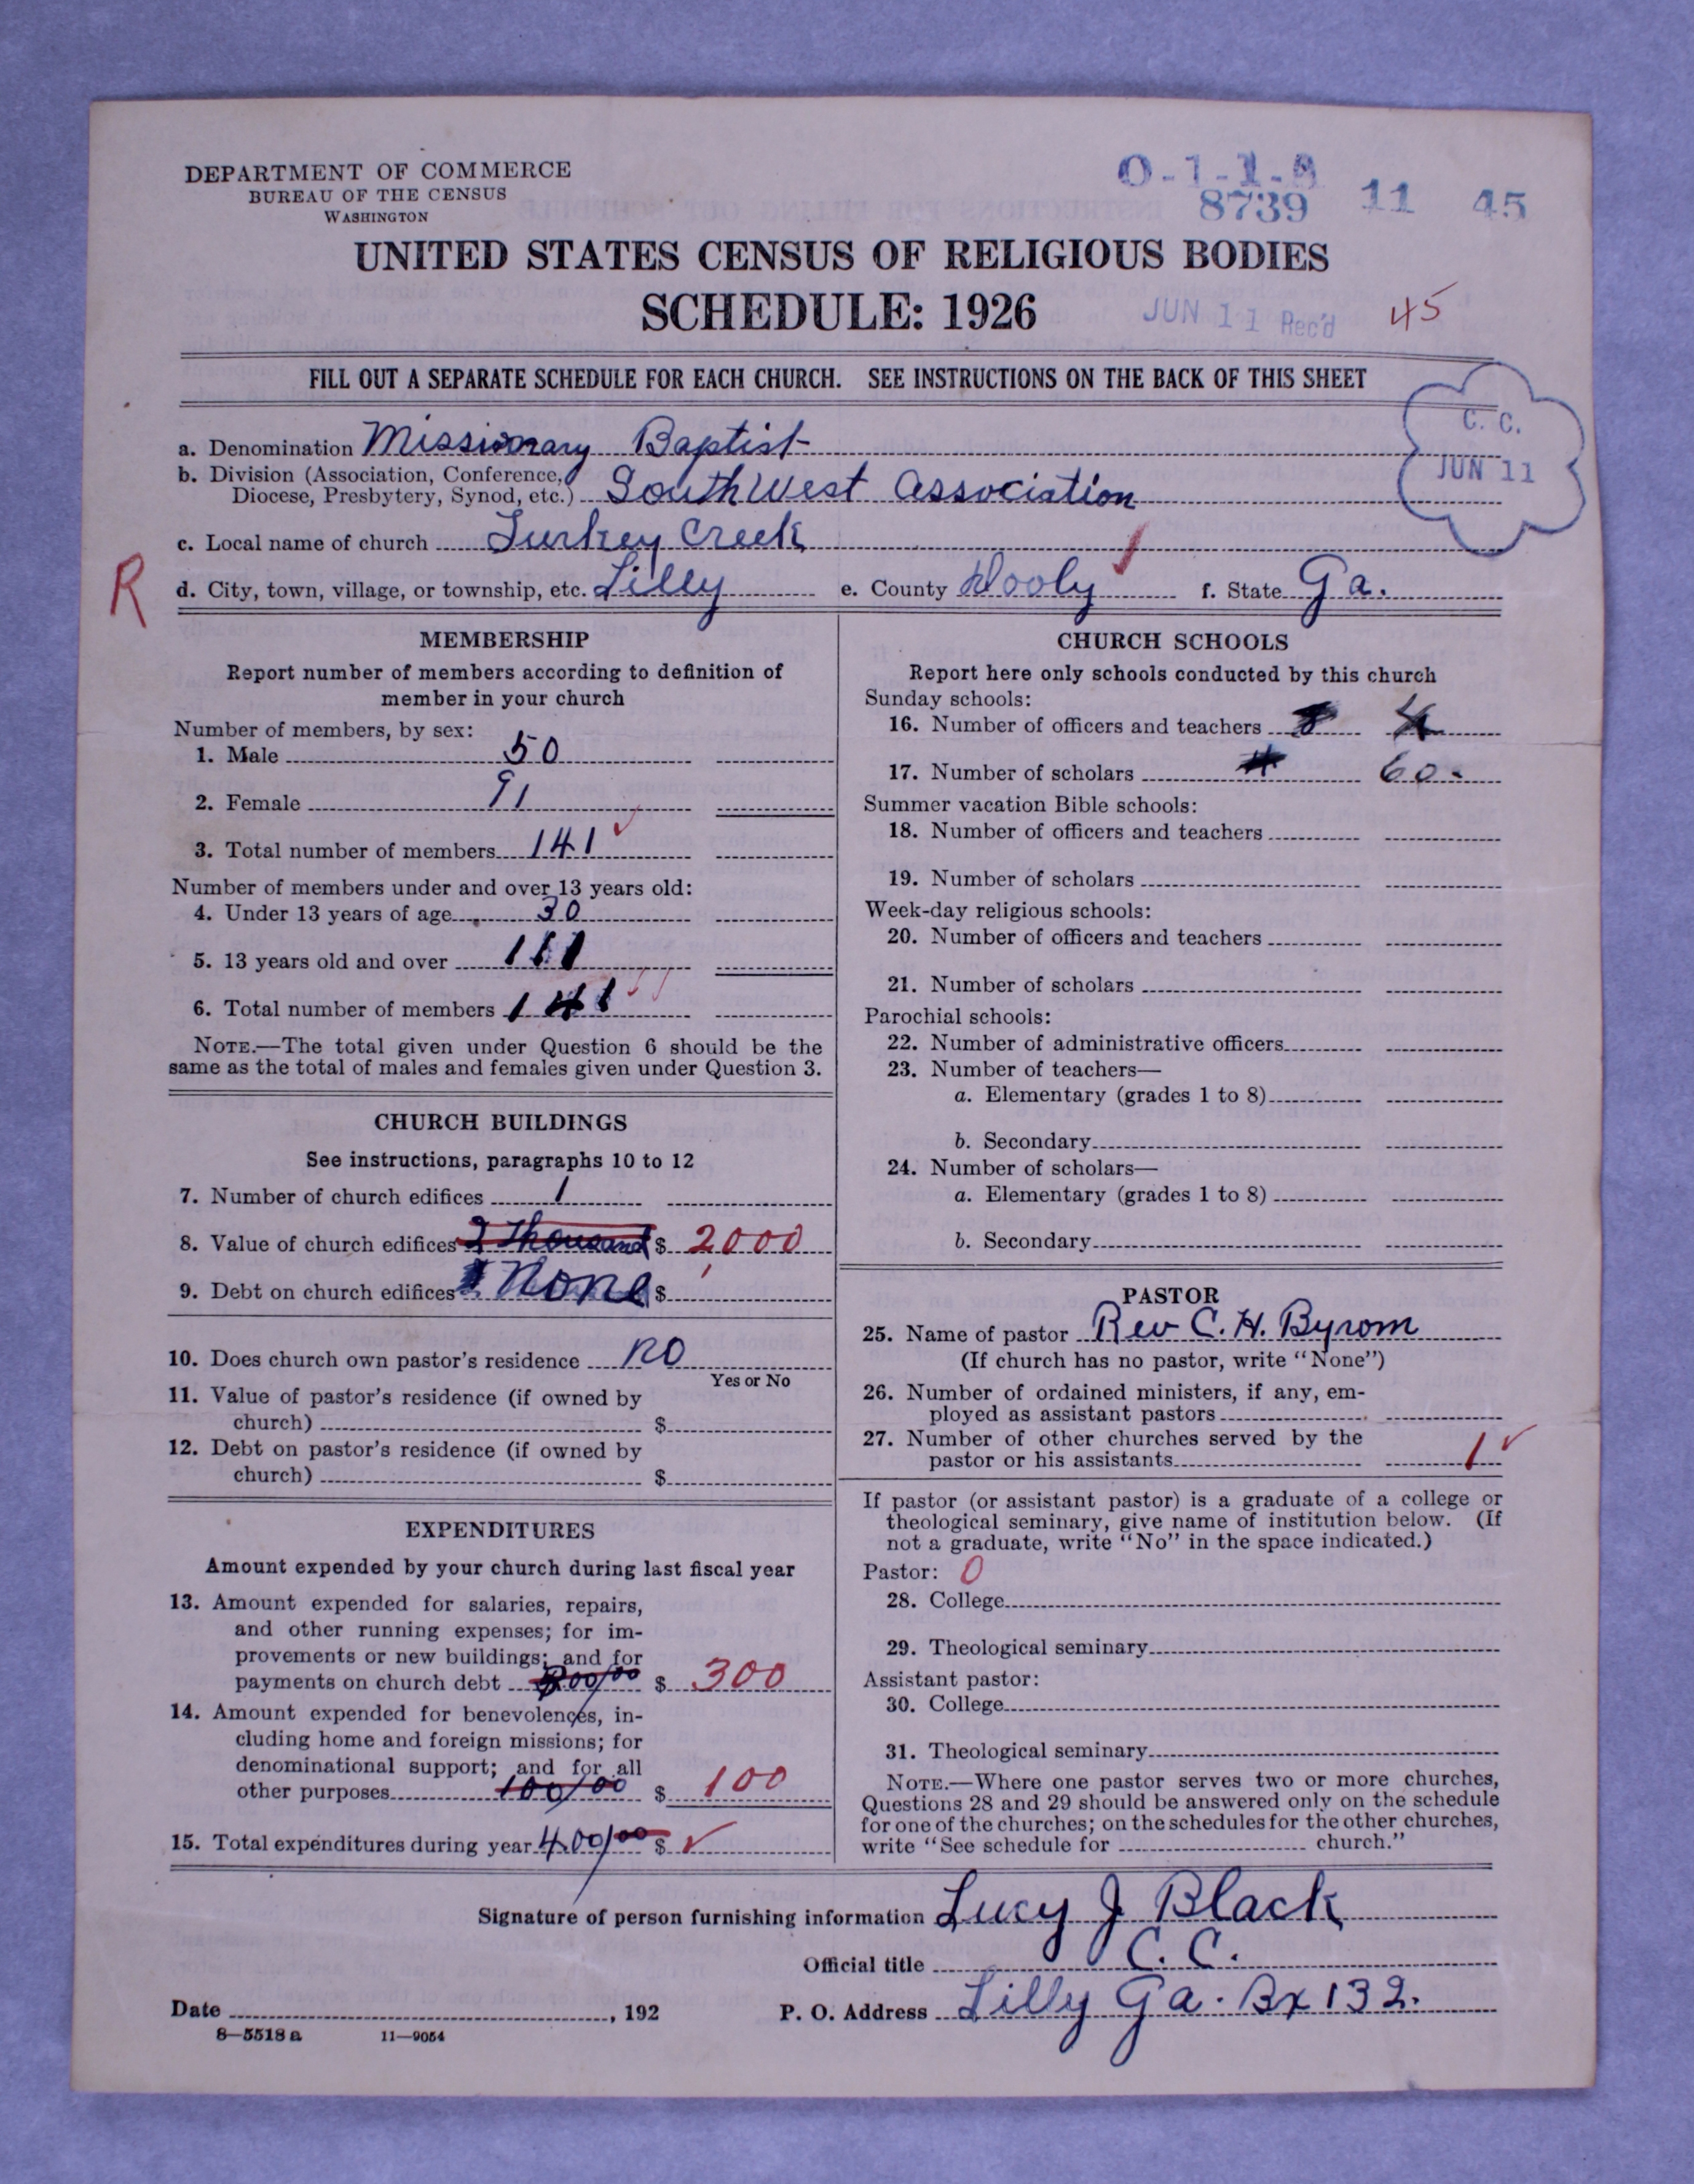 DEPARTMENT OF COMMERCE
BUREAU OF THE CENSUS
WASHINGTON
0-1-1-
8739 11 45
UNITED STATES CENSUS OF RELIGIOUS BODIES
SCHEDULE: 1926
JUN 11 Rec'd
45
FILL OUT A SEPARATE SCHEDULE FOR EACH CHURCH. SEE INSTRUCTIONS ON THE BACK OF THIS SHEET
C. C.
JUN 11
a. Denomination Missionary Baptist
b. Division (Association, Conference, Diocese, Presbytery, Synod, etc.) South West Association
c. Local name of church Turkey Creek
R
d. City, town, village, or township, etc. Lilly e. County Dooly f. State Ga.
MEMBERSHIP
Report number of members according to definition of
member in your church
Number of members, by sex:
1. Male 50
2. Female 91
3. Total number of members 141
Number of members under and over 13 years old:
4. Under 13 years of age 30
5. 13 years old and over 111
6. Total number of members 141
NOTE.—The total given under Question 6 should be the
same as the total of males and females given under Question 3.
CHURCH BUILDINGS
See instructions, paragraphs 10 to 12
7. Number of church edifices 1
8. Value of church edifices 2 Thousand $ 2000
9. Debt on church edifices None $
10. Does church own pastor's residence no
Yes or No
11. Value of pastor's residence (if owned by
church) $
12. Debt on pastor's residence (if owned by
church) $
EXPENDITURES
Amount expended by your church during last fiscal year
13. Amount expended for salaries, repairs,
and other running expenses; for im-
provements or new buildings; and for
payments on church debt 300/00 $ 300
14. Amount expended for benevolences, in-
cluding home and foreign missions; for
denominational support; and for all
other purposes 100/00 $ 100
15. Total expenditures during year 400/00 $
CHURCH SCHOOLS
Report here only schools conducted by this church
Sunday schools:
16. Number of officers and teachers 4
17. Number of scholars 60.
Summer vacation Bible schools:
18. Number of officers and teachers
19. Number of scholars
Week-day religious schools:
20. Number of officers and teachers
21. Number of scholars
Parochial schools:
22. Number of administrative officers
23. Number of teachers—
a. Elementary (grades 1 to 8)
b. Secondary
24. Number of scholars—
a. Elementary (grades 1 to 8)
b. Secondary
PASTOR
25. Name of pastor Rev C. H. Byrom
(If church has no pastor, write "None")
26. Number of ordained ministers, if any, em-
ployed as assistant pastors
27. Number of other churches served by the
pastor or his assistants 1
If pastor (or assistant pastor) is a graduate of a college or
theological seminary, give name of institution below. (If
not a graduate, write "No" in the space indicated.)
Pastor: 0
28. College
29. Theological seminary
Assistant pastor:
30. College
31. Theological seminary
NOTE.—Where one pastor serves two or more churches,
Questions 28 and 29 should be answered only on the schedule
for one of the churches; on the schedules for the other churches,
write "See schedule for church."
Signature of person furnishing information Lucy J Black
Official title C. C.
Date , 192 P. O. Address Lilly Ga. Bx 132.
8—5518 a 11—9054